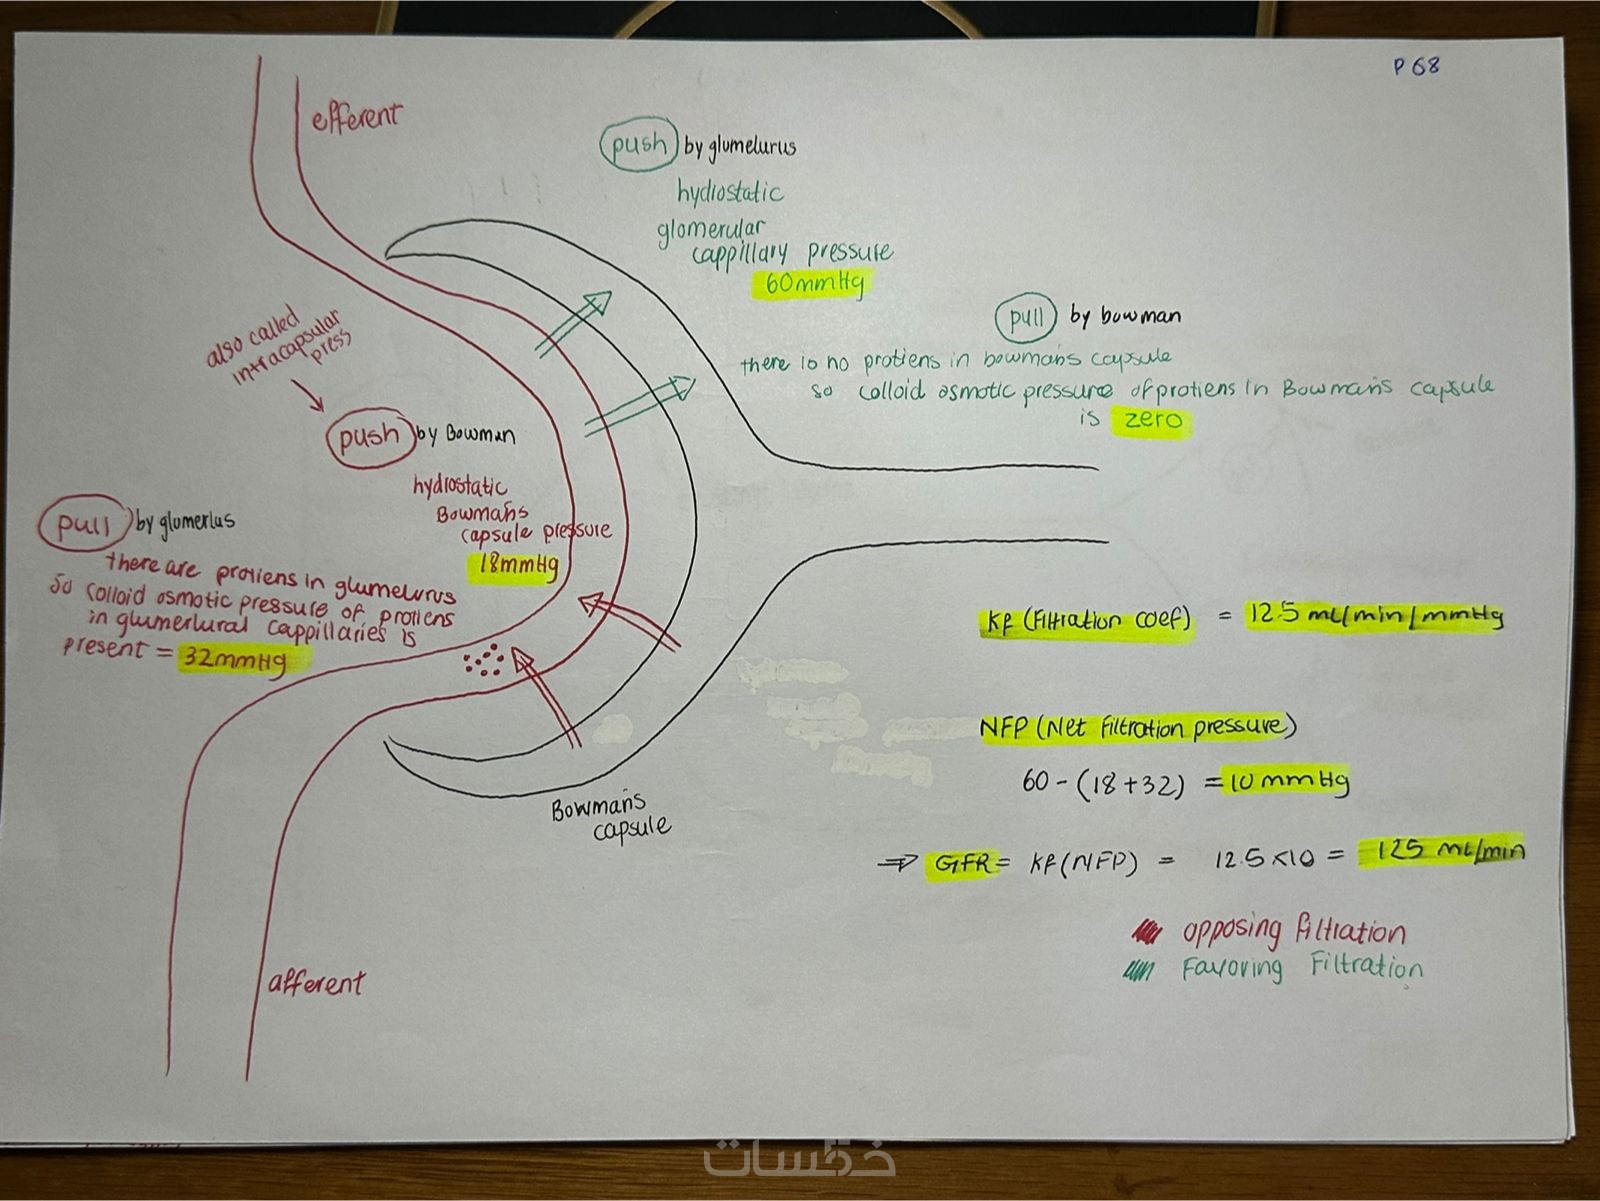 P 68
efferent
push by glumelurus
hydrostatic
glomerular
cappillary pressure
60mmHg
pull by bowman
there is no protiens in bowman's capsule
so colloid osmotic pressure of protiens in Bowman's capsule
is zero
also called
intracapsular
press
push by Bowman
hydrostatic
Bowman's
capsule pressure
18mmHg
pull by glomerlus
there are protiens in glumelurus
so colloid osmotic pressure of protiens
in glumerlural cappillaries is
present = 32mmHg
Bowman's
capsule
afferent
Kf (Filtration coef) = 12.5 mL/min/mmHg
NFP (Net Filtration pressure)
60 - (18+32) = 10 mmHg
⇒ GFR = Kf (NFP) = 12.5 × 10 = 125 mL/min
opposing filtration
Favoring Filtration
خمسات